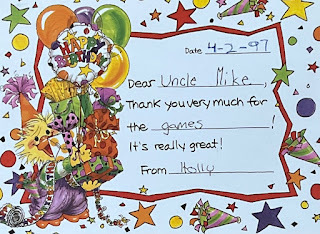 HAPPY
BIRTHDAY
Date 4-2-97
Dear Uncle Mike,
Thank you very much for
the games!
It's really great!
From Holly